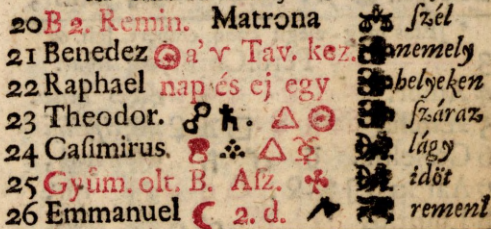 20 B 2. Remin. Matrona ſzél
21 Benedez ☉ a' ♈ Tav. kez. nemely
22 Raphael nap és ej egy helyeken
23 Theodor. ☍ ♄. △ ☉ ſzáraz
24 Caſimirus. △ ☿ lágy
25 Gyům. olt. B. Aſz. idöt
26 Emmanuel ☾ 2. d. reménl